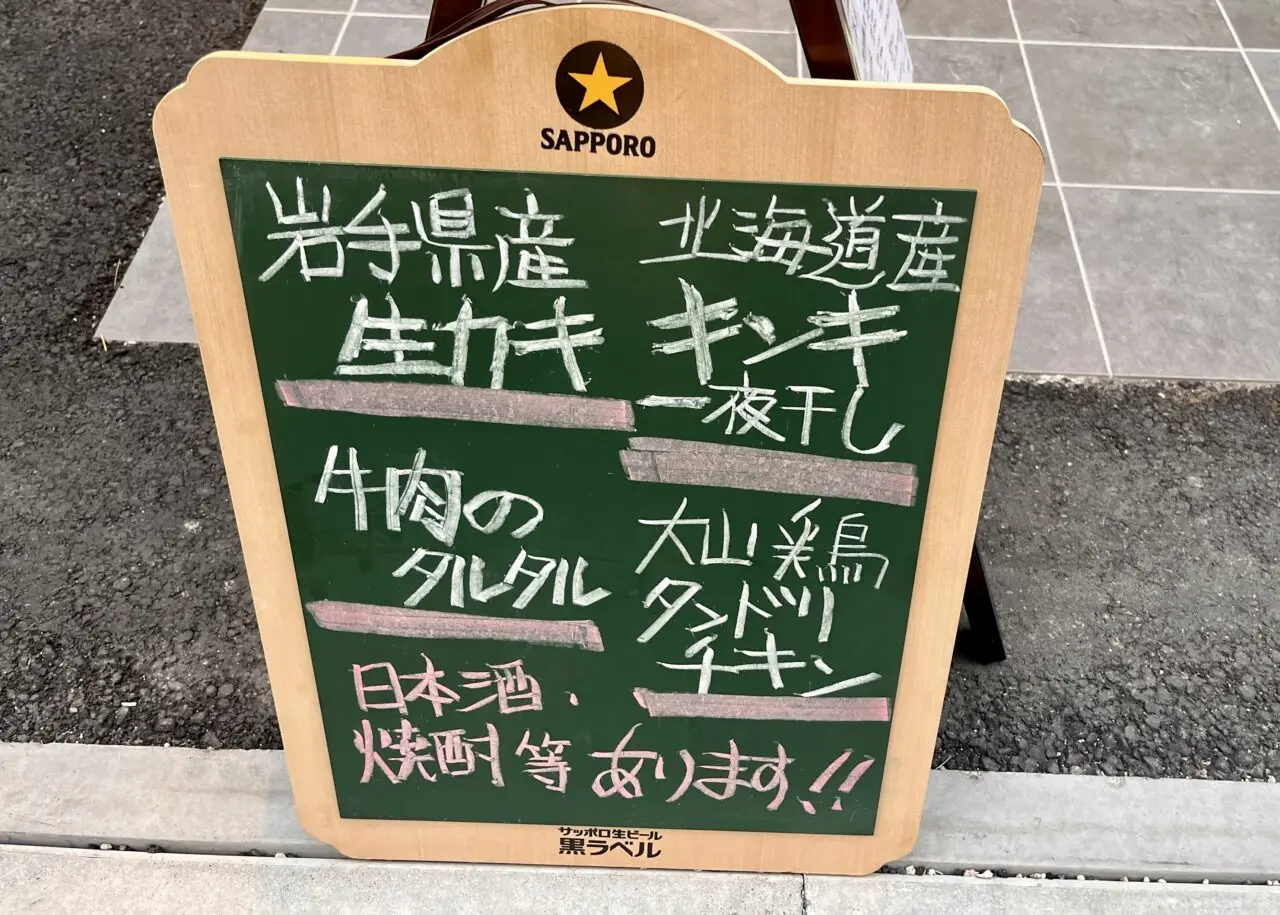 SAPPORO
岩手県産
生カキ
北海道産
キンキ
一夜干し
牛肉の
タルタル
大山鶏
タンドリ
チキン
日本酒、
焼酎等あります!!
サッポロ生ビール
黒ラベル